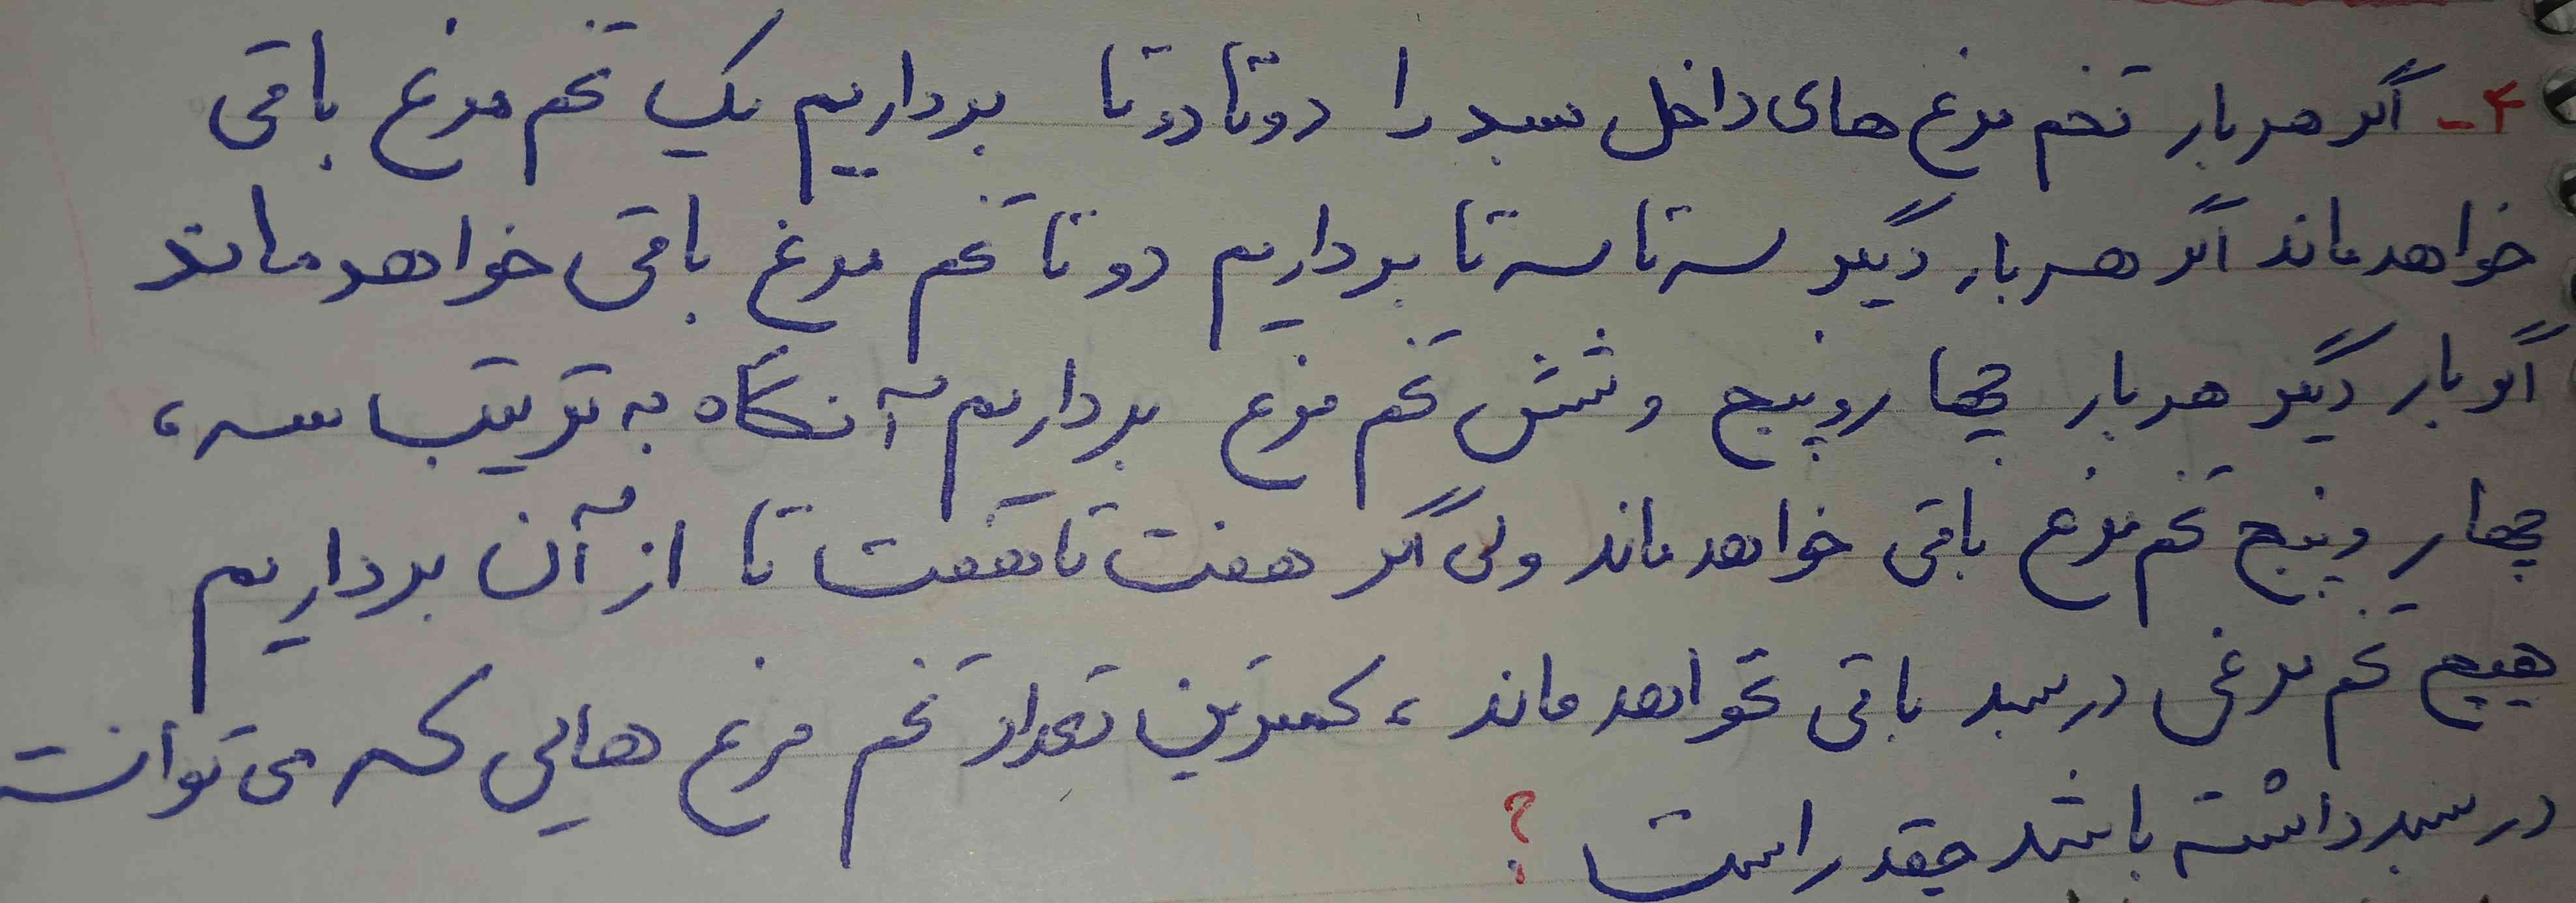 ۴- اگر هر بار تخم مرغ های داخل سبد را دوتا دوتا برداریم یک تخم مرغ باقی
خواهد ماند اگر هر بار دیگر سه تا سه تا برداریم دو تا تخم مرغ باقی خواهد ماند
اگر بار دیگر هر بار چهار و پنج و شش تخم مرغ برداریم آنگاه به ترتیب سه،
چهار و پنج تخم مرغ باقی خواهد ماند ولی اگر هفت تا هفت تا از آن برداریم
هیچ تخم مرغی در سبد باقی نخواهد ماند، کمترین تعداد تخم مرغ هایی که می توانست
در سبد داشته باشد چقدر است ؟